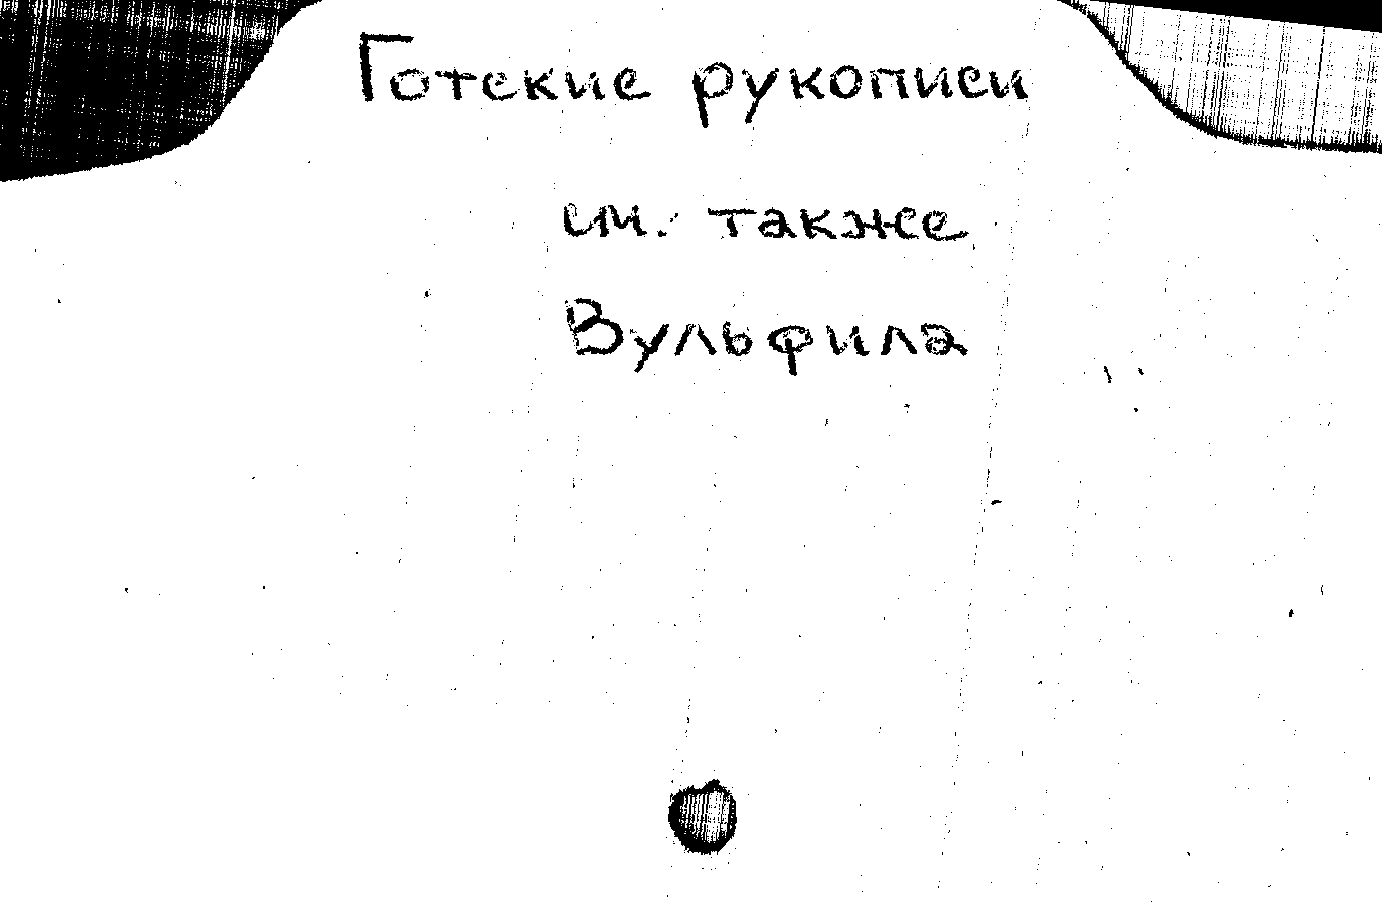 Готские рукописи
см. также
Вульфила